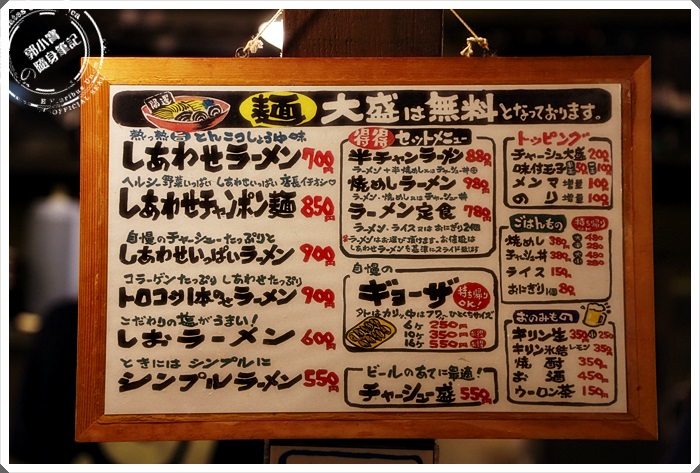 郭小寶
の隨身筆記
開運
麺 大盛は無料となっております。
熱っ熱 とんこつしょうゆ味
しあわせラーメン 700円
ヘルシー 野菜いっぱい しあわせいっぱい 店長イチオシ
しあわせチャンポン麺 850円
自慢のチャーシューたっぷりと
しあわせいっぱいラーメン 900円
コラーゲンたっぷり しあわせたっぷり
トロコツ1本のせラーメン 900円
こだわりの塩がうまい!
しおラーメン 600円
ときにはシンプルに
シンプルラーメン 550円
得得 セットメニュー
半チャンラーメン 880円
ラーメン+半焼めし又はチャーシュー丼
焼めしラーメン 980円
ラーメン・焼めし又はチャーシュー丼
ラーメン定食 780円
ラーメン・ライス又はおにぎり2個
※ラーメンはお選び頂けます。お値段は
しあわせラーメンを基準にスライド致します
自慢の
ギョーザ 持ち帰りOK!
外はカリッ、中はフワッ、ひとくちサイズ
6ヶ 250円
10ヶ 350円
16ヶ 550円
ビールのあてに最適!
チャーシュー盛 550円
トッピング
チャーシュー大盛 200円
味付玉子 50円 100円
メンマ 増量 100円
のり 増量 100円
ごはんもの 持ち帰り
焼めし 380円 大 480円 小 280円
チャーシュー丼 380円 大 480円 小 280円
ライス 150円
おにぎり 1個 80円
おのみもの
キリン生 350円 小 250円
キリン氷結 レモン 350円
焼酎 350円
お酒 450円
ウーロン茶 150円